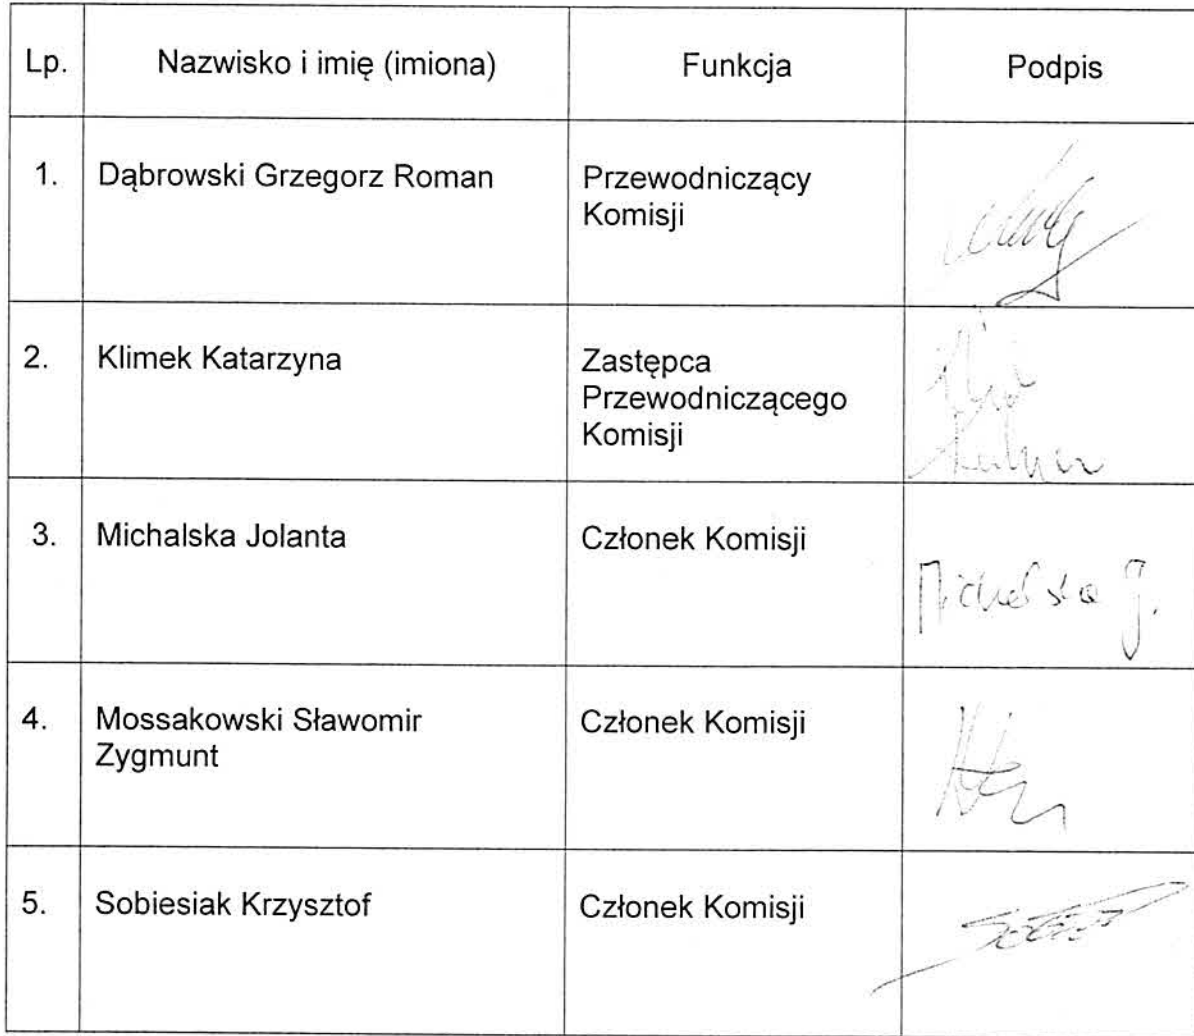 Lp. Nazwisko i imię (imiona) Funkcja Podpis
1. Dąbrowski Grzegorz Roman Przewodniczący
Komisji
2. Klimek Katarzyna Zastępca
Przewodniczącego
Komisji
3. Michalska Jolanta Członek Komisji
Michalska J.
4. Mossakowski Sławomir Członek Komisji
Zygmunt
5. Sobiesiak Krzysztof Członek Komisji